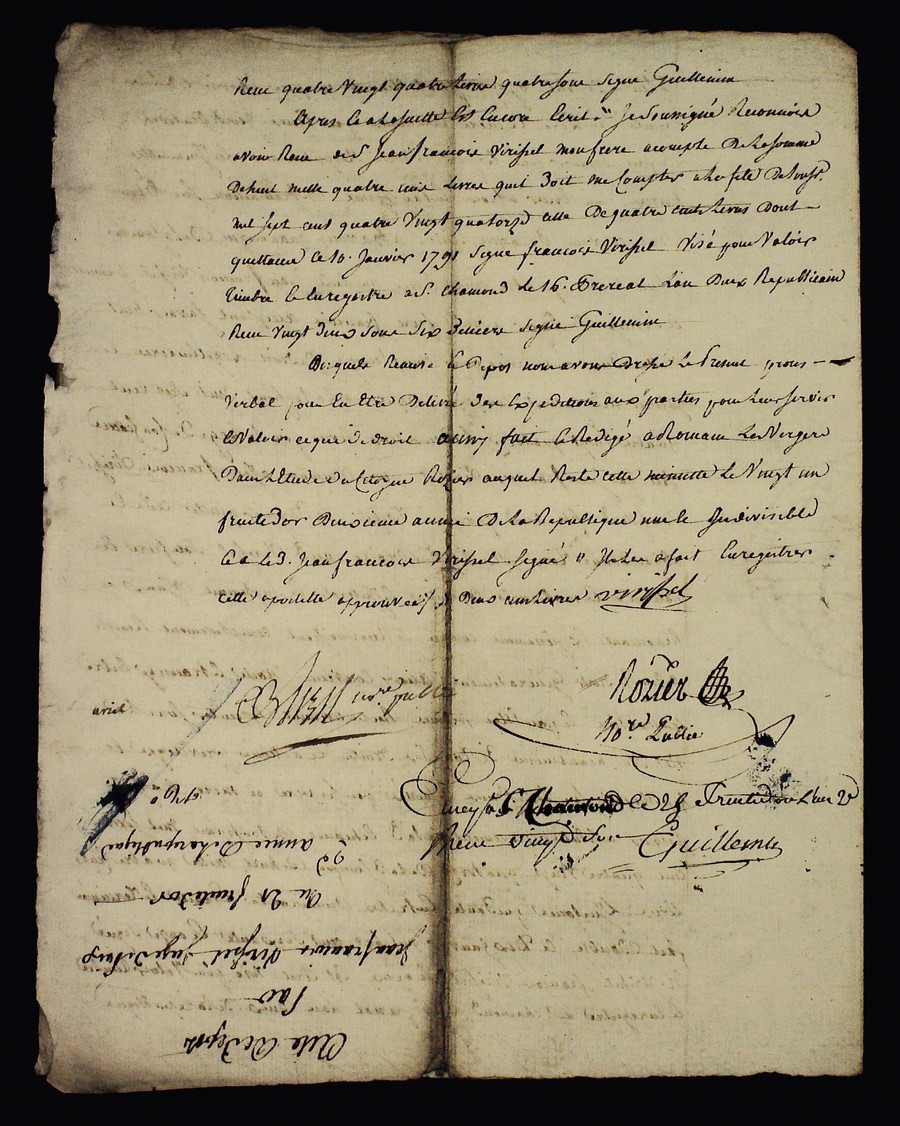 Reçu quatre Vingt quatre Livres quatre sous Signé Guillemin
Apres Ce a La suitte Est Encore Ecrit. Je Soussigné Reconnois
avoir Recu de S. Jean francois Virissel mon frere acompte De La somme
De huit mille quatre cent Livres quil Doit me Compter a La fete De
mil sept cent quatre Vingt quatorze celle De quatre cents Livres Dont
quittance ce 10. Janvier 1791 Signé francois Virissel Visé pour Valoir
Timbre Et Enregistré a St. chamond Le 16. Prereal L'an Deux Republicain
Recu Vingt Deux sous Six Deniers Signé Guillemin
Desquels Remise Et Depos nous avons Dressé Le Present proces
Verbal pour En Etre Delivré Des Expeditions aux parties pour Leur servir
Et Valoir ce que de droit ainsy fait Et Redigé a Romain Les Vergers
Dans L'Etude du Citoyen Rozier auquel Reste cette minutte Le Vingt un
fruitidor Deuxieme année De La Republique une Et Indivisible
Et a Le D. Jean francois Virissel Signé " fait Enregistrer
cette apostille approuvée Deux cent Livres virissel
nore public
Rozier
No.re Public
avril
Enreg. a St Chamond le 25 Fruitidor L'an 2e
Recu vingt sols Guillemin
Acte De Depot
Par
Jean francois Virissel Juge De Paix
Du 21 fruitidor
2e année De La republique
No